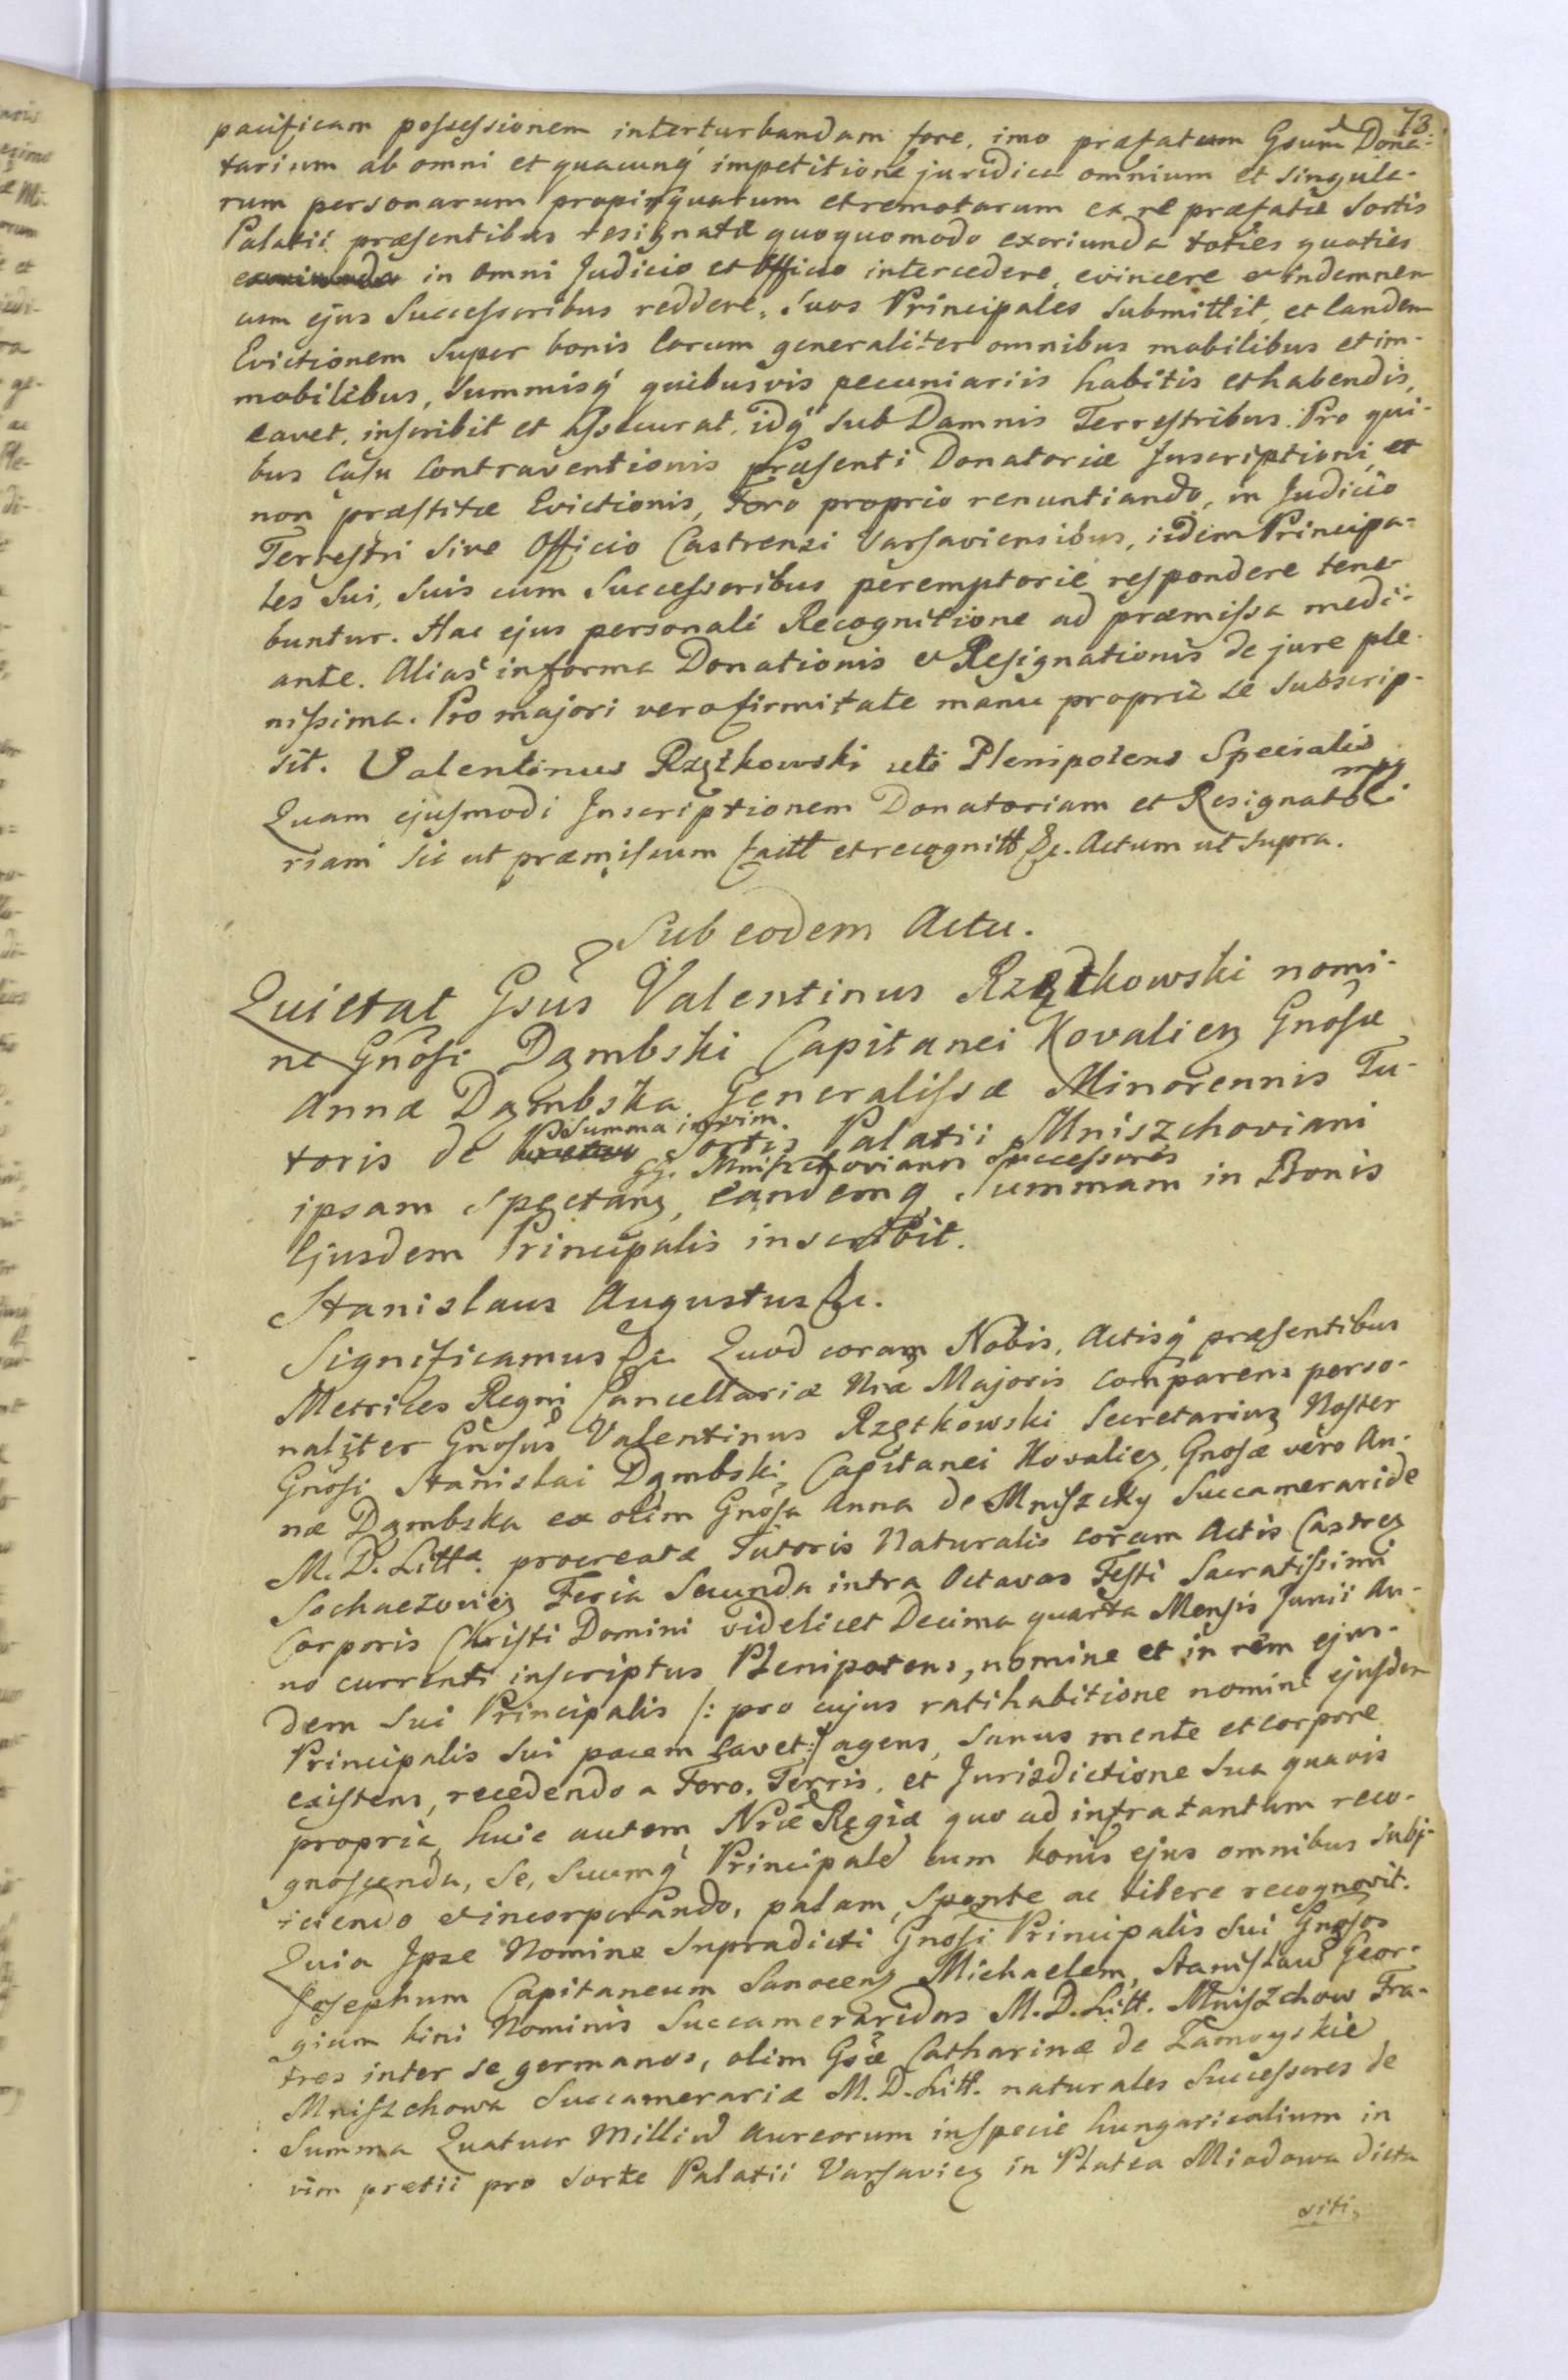 73.
pacificam possessionem interturbandam fore, imo præfatum Gsum Dona-
tarium ab omni et quacunq' impetitione juridica omnium et singula-
rum personarum propinquarum et remotarum ex re præfatæ Sortis
Palatii præsentibus resignatæ quoquomodo exoriunda toties quoties
in omni Judicio et Officio intercedere, evincere et indemnem
cum ejus Successoribus reddere, Suos Principales Submittit, et eandem
Evictionem Super bonis eorum generaliter omnibus mobilibus et im-
mobilibus, Summisq' quibusvis pecuniariis habitis et habendis,
cavet, inscribit et assecurat, idq' Sub Damnis Terrestribus. Pro qui-
bus Casu Contraventionis præsenti Donatoriæ Inscriptioni, et
non præstitæ Evictionis, Foro proprio renuntiando, in Judicio
Terrestri Sive Officio Castrensi Varsaviensibus, iidem Principa-
les Sui, Suis cum Successoribus peremptorie respondere tene-
buntur. Hac ejus personali Recognitione ad præmissa medi-
ante. Alias in forma Donationis et Resignationis de jure ple-
nissima. Pro majori vero firmitate manu propria se Subscrip-
sit. Valentinus Rzętkowski uti Plenipotens Specialis
mpp
Quam ejusmodi Inscriptionem Donatoriam et Resignato-
riam Sic ut præmissum facitt et recognitt &c. Actum ut Supra.
Sub eodem Actu.
Quietat Gsus Valentinus Rzętkowski nomi-
ne Gnosi Dąmbski Capitanei Kovalien Gnosæ
Annæ Dąmbska Generalissæ Minorennis Tu-
Summa in vim.
toris de Sortis Palatii Mniszchoviani
GG. Mniszchovianos Successores
ipsam Spectan, eandemq Summam in Bonis
Ejusdem Principalis inscribit.
Stanislaus Augustus &c.
Significamus &c Quod coram Nobis, Actisq' præsentibus
Metrices Regni Cancellariæ Nræ Majoris Comparens perso-
naliter Gnosus Valentinus Rzętkowski Secretarius Noster
Gnosi Stanislai Dąmbski, Capitanei Kovalien, Gnosæ vero An-
næ Dąmbska ex olim Gnosa Anna de Mniszchy Succameraride
M. D. Littæ. procreatæ Tutoris Naturalis coram Actis Castren
Sochaczovien Feria Secunda intra Octavas Festi Sacratissimi
Corporis Christi Domini videlicet Decima quarta Mensis Junii An-
no currenti inscriptus Plenipotens, nomine et in rem ejus-
dem Sui Principalis /: pro cujus ratihabitione nomine ejusdem
Principalis Sui pacem cavet :/ agens, Sanus mente et corpore
existens, recedendo a Foro, Terris, et Jurisdictione Sua quavis
propria, huic autem Nræ Regiæ quo ad infra tantum reco-
gnoscenda, Se, Suumq' Principale cum bonis ejus omnibus Subj-
iciendo et incorporando, palam, Sponte ac libere recognovit.
Quia Ipse Nomine Supradicti Gnosi Principalis Sui Gnosos
Josephum Capitaneum Sanocen Michaelem, Stanislaũ Geor-
gium bini Nominis Succamerarides M. D. Litt. Mniszchow Fra-
tres inter Se germanos, olim Gsæ Catharinæ de Zamoyskie
Mniszchowa Succamerariæ M. D. Litt. naturales Successores de
Summa Quatuor Milliũ Aureorum in Specie hungaricalium in
vim pretii pro Sorte Palatii Varsavien in Platea Miodowa dicta
siti,